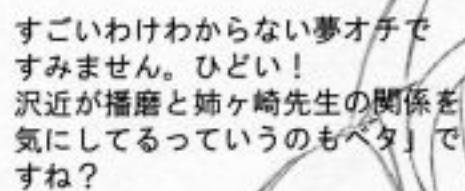 すごいわけわからない夢オチで
すみません。ひどい！
沢近が播磨と姉ヶ崎先生の関係を
気にしてるっていうのもベタ」で
すね？